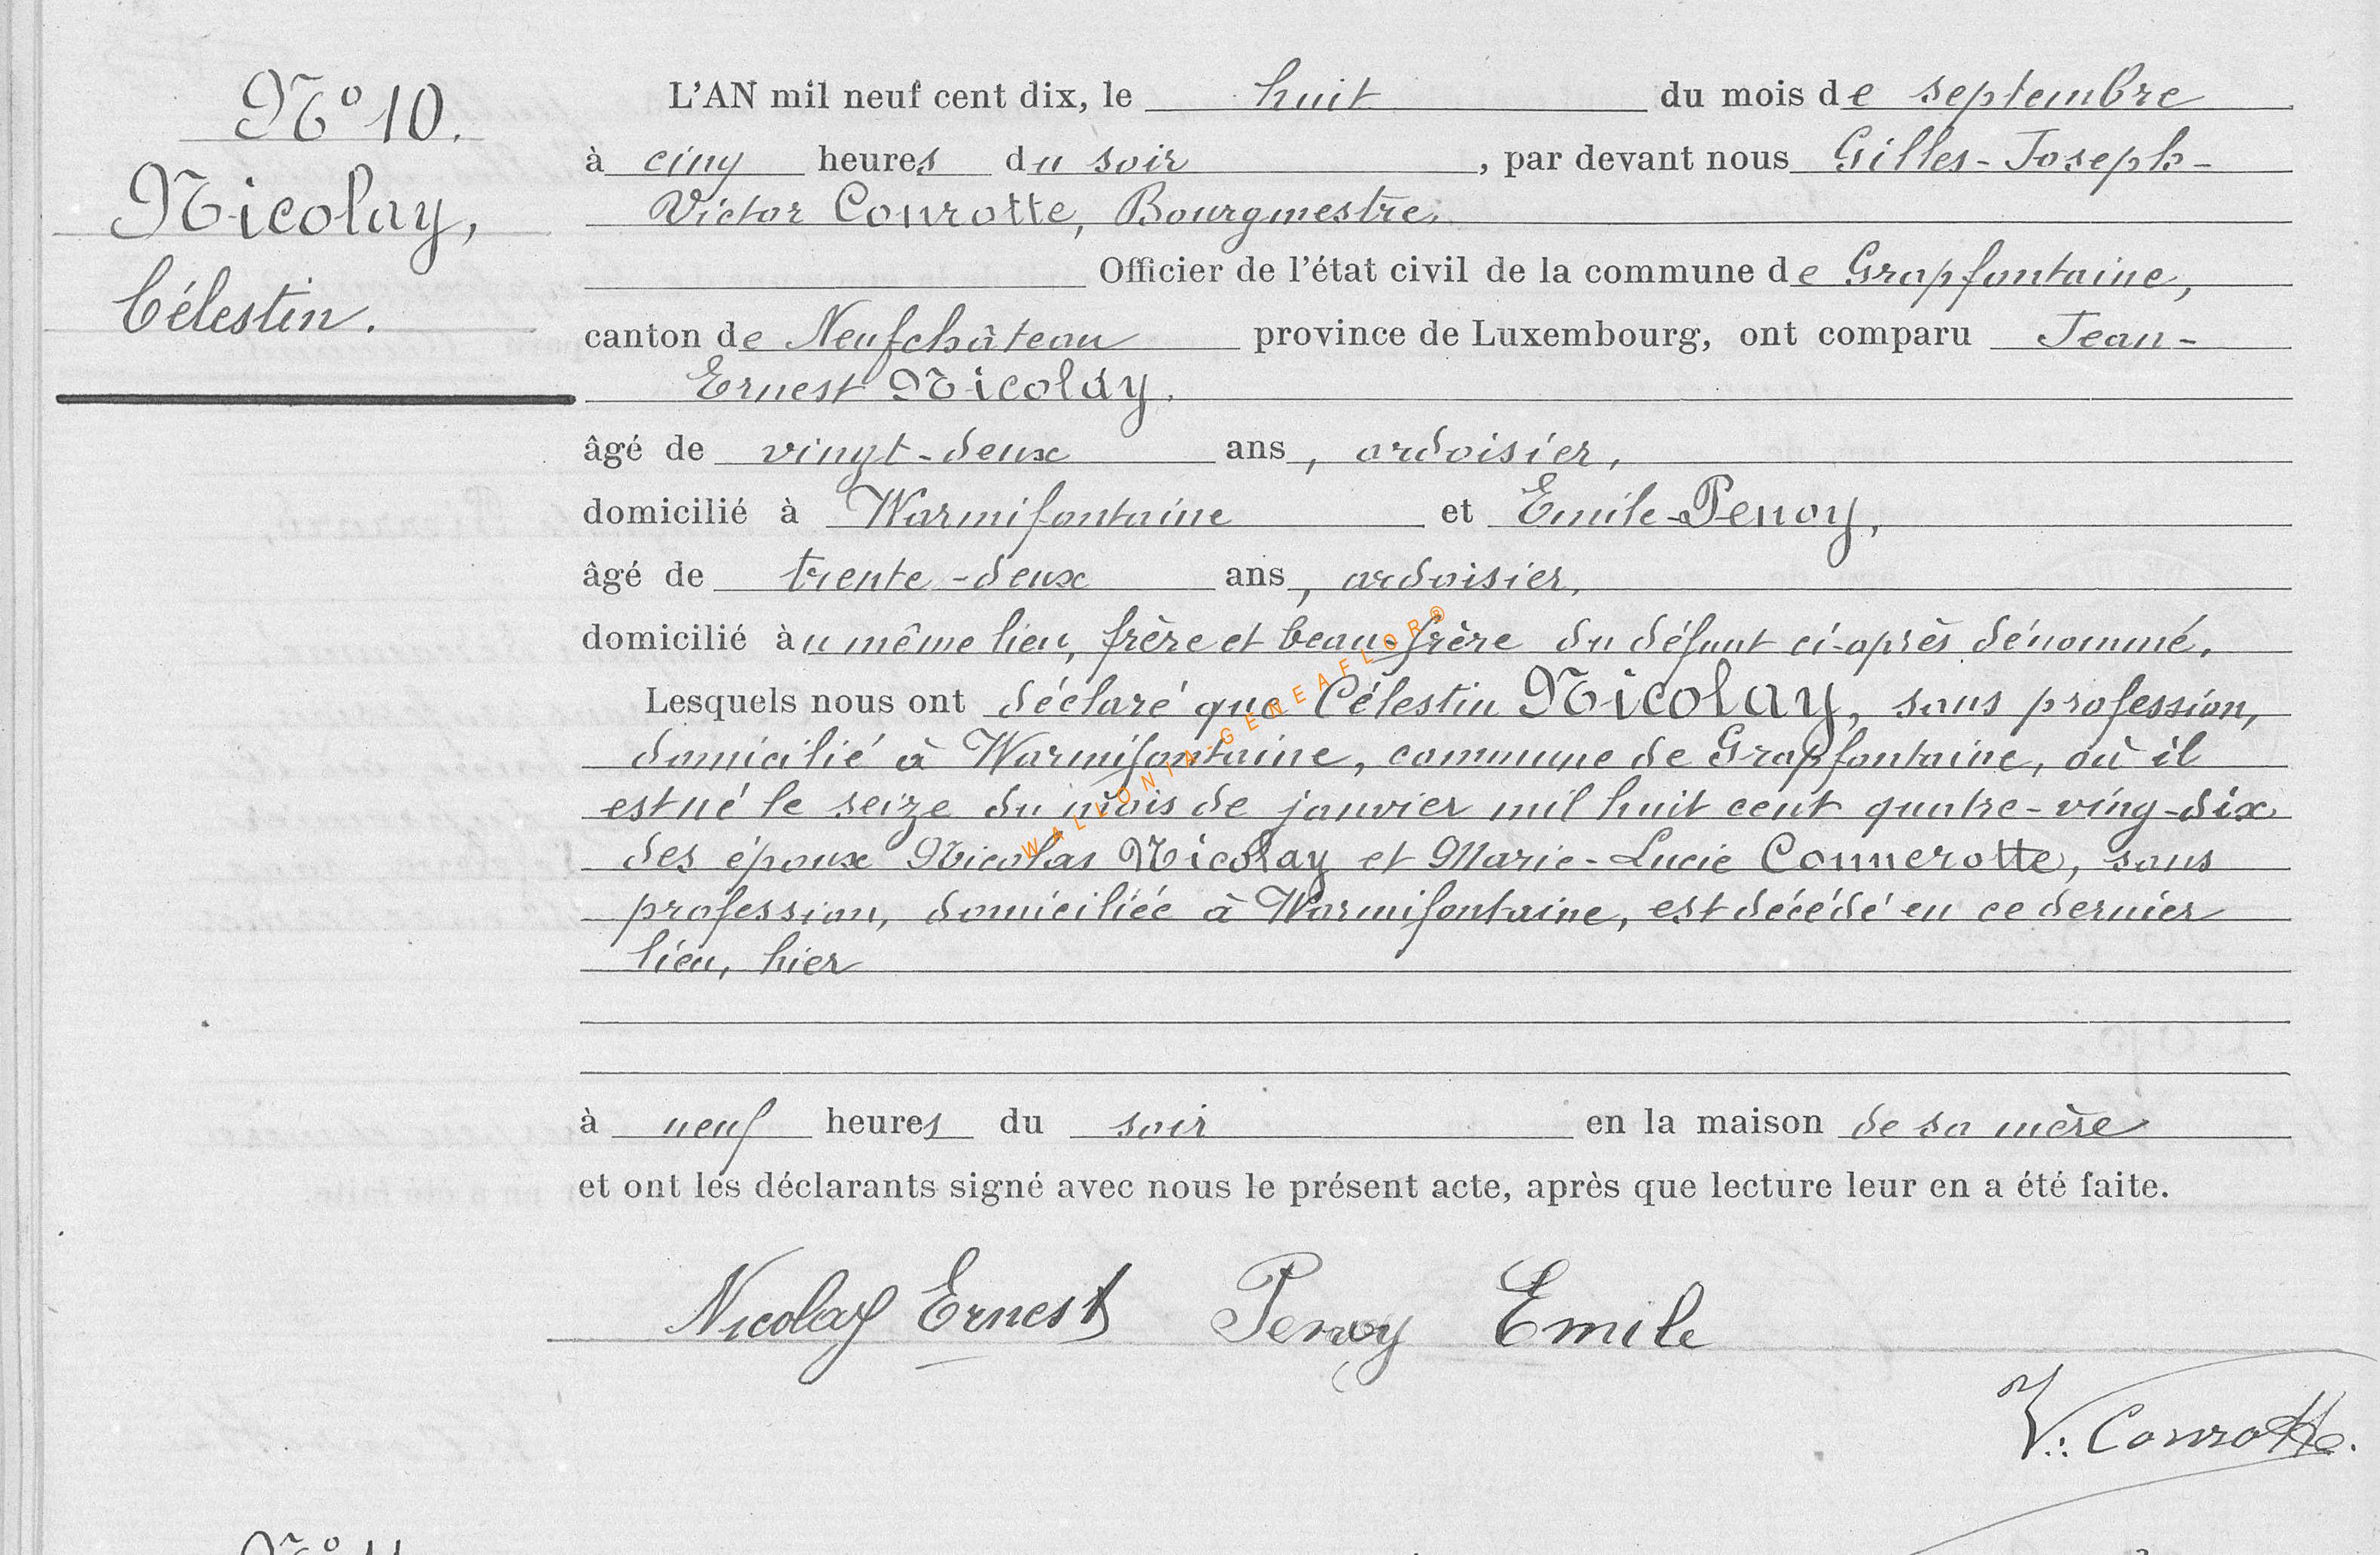 N° 10.
Nicolay,
Célestin.
L'AN mil neuf cent dix, le huit du mois de septembre
à cinq heures du soir, par devant nous Gilles-Joseph-
Victor Conrotte, Bourgmestre,
Officier de l'état civil de la commune de Grapfontaine,
canton de Neufchâteau province de Luxembourg, ont comparu Jean-
Ernest Nicolay,
âgé de vingt-deux ans, ardoisier,
domicilié à Warmifontaine et Emile Penoy,
âgé de trente-deux ans, ardoisier,
domicilié au même lieu, frère et beau-frère du défunt ci-après dénommé.
Lesquels nous ont déclaré que Célestin Nicolay, sans profession,
domicilié à Warmifontaine, commune de Grapfontaine, où il
est né le seize du mois de janvier mil huit cent quatre-ving-dix
des époux Nicolas Nicolay et Marie-Lucie Connerotte, sans
profession, domiciliée à Warmifontaine, est décédé en ce dernier
lieu, hier
à neuf heures du soir en la maison de sa mère
et ont les déclarants signé avec nous le présent acte, après que lecture leur en a été faite.
Nicolay Ernest Penoy Emile
V. Conrotte.
WALLONIA-GENEAFLOR®
N° 11